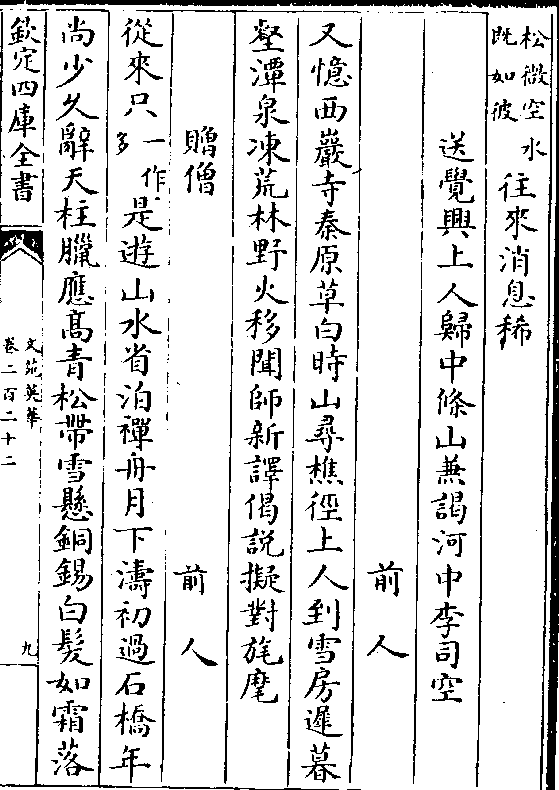 松微空水
既如彼
往來消息稀
送覺興上人歸中條山兼謁河中李司空
前人
又憶西巖寺秦原草白時山尋樵徑上人到雪房遲暮
壑潭泉凍荒林野火移聞師新譯偈説擬對旄麾
贈僧 前人
從來只一作多是遊山水省泊禪舟月下濤初過石橋年
尚少久辭天柱臘應髙青松帶雪懸銅錫白髮如霜落
欽定四庫全書
文苑英華
卷二百二十二
九